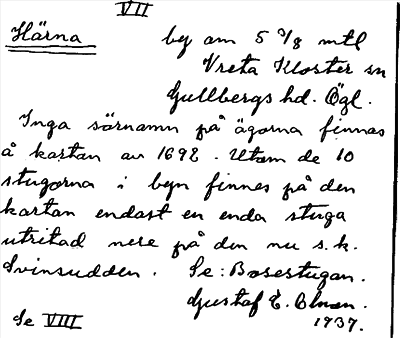 VII
Härna by om 5 3/8 mtl
Vreta Kloster sn
Gullbergs hd. Ögl.
Inga särnamn på ägorna finnas
å kartan av 1692. Utom de 10
stugorna i byn finnes på den
kartan endast en enda stuga
utritad nere på den nu s.k.
Svinsudden. Se: Bosestugan.
Gustaf E.
Se VIII 1937.